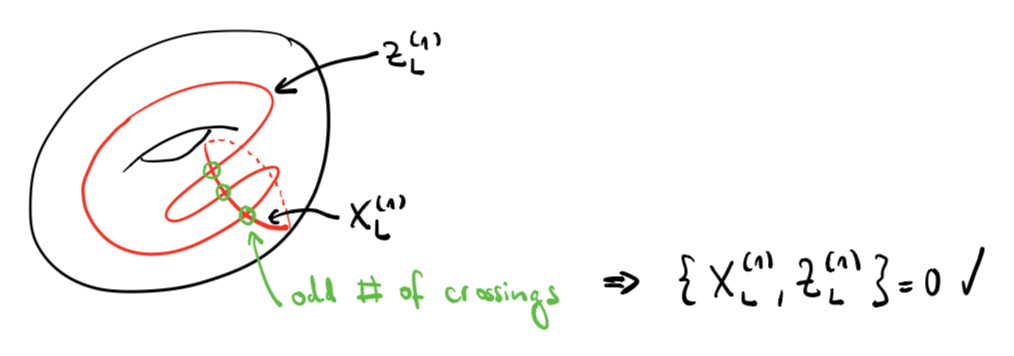 Z_L^(1)
X_L^(1)
odd # of crossings ⇒ { X_L^(1), Z_L^(1) } = 0 ✓